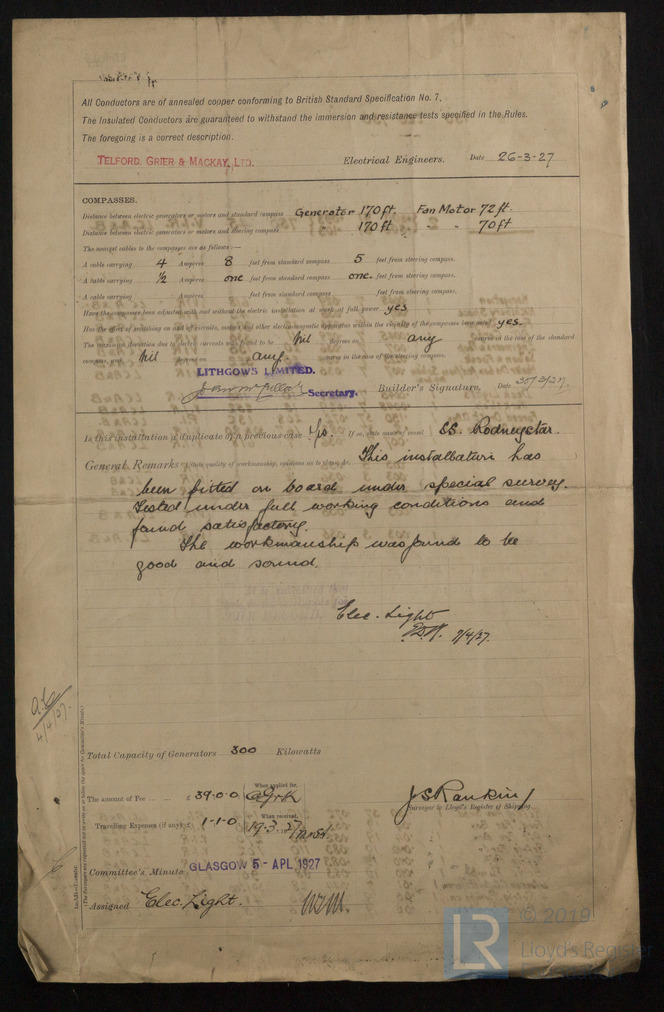 All Conductors are of annealed cooper conforming to British Standard Specification No. 7.
The Insulated Conductors are guaranteed to withstand the immersion and resistance tests specified in the Rules.
The foregoing is a correct description.
TELFORD, GRIER & MACKAY, LTD. Electrical Engineers. Date 26-3-27
COMPASSES.
Distance between electric generators or motors and standard compass Generator 170ft. Fan Motor 72ft.
Distance between electric generators or motors and steering compass " 170ft " " 70ft
The nearest cables to the compasses are as follows:—
A cable carrying 4 Amperes 8 feet from standard compass 5 feet from steering compass.
A cable carrying ½ Amperes one feet from standard compass one feet from steering compass.
A cable carrying Amperes feet from standard compass feet from steering compass.
Have the compasses been adjusted with and without the electric installation at work at full power yes
Has the effect of switching on and off circuits, motors and other electro-magnetic apparatus within the vicinity of the compasses been noted yes.
The maximum deviation due to electric currents was found to be Nil degrees on any course in the case of the standard
compass, and Nil degrees on any course in the case of the steering compass.
LITHGOWS LIMITED.
Secretary. Builder's Signature. Date 30/3/27
Is this installation a duplicate of a previous case Yes. If so, state name of vessel SS. Rodneystar.
General Remarks This installation has
been fitted on board under special survey.
Tested under full working conditions and
found satisfactory.
The workmanship was found to be
good and sound.
Elec. Light
7/4/27
4/4/27
Total Capacity of Generators 300 Kilowatts
The amount of Fee £ 39.0.0 When applied for,
J S Rankin
Surveyor to Lloyd's Register of Shipping.
Travelling Expenses (if any) £ 1.1.0 When received, 19.3.27
Committee's Minute GLASGOW 5 - APL 1927
Assigned Elec. Light.
LR
© 2019
Lloyd's Register